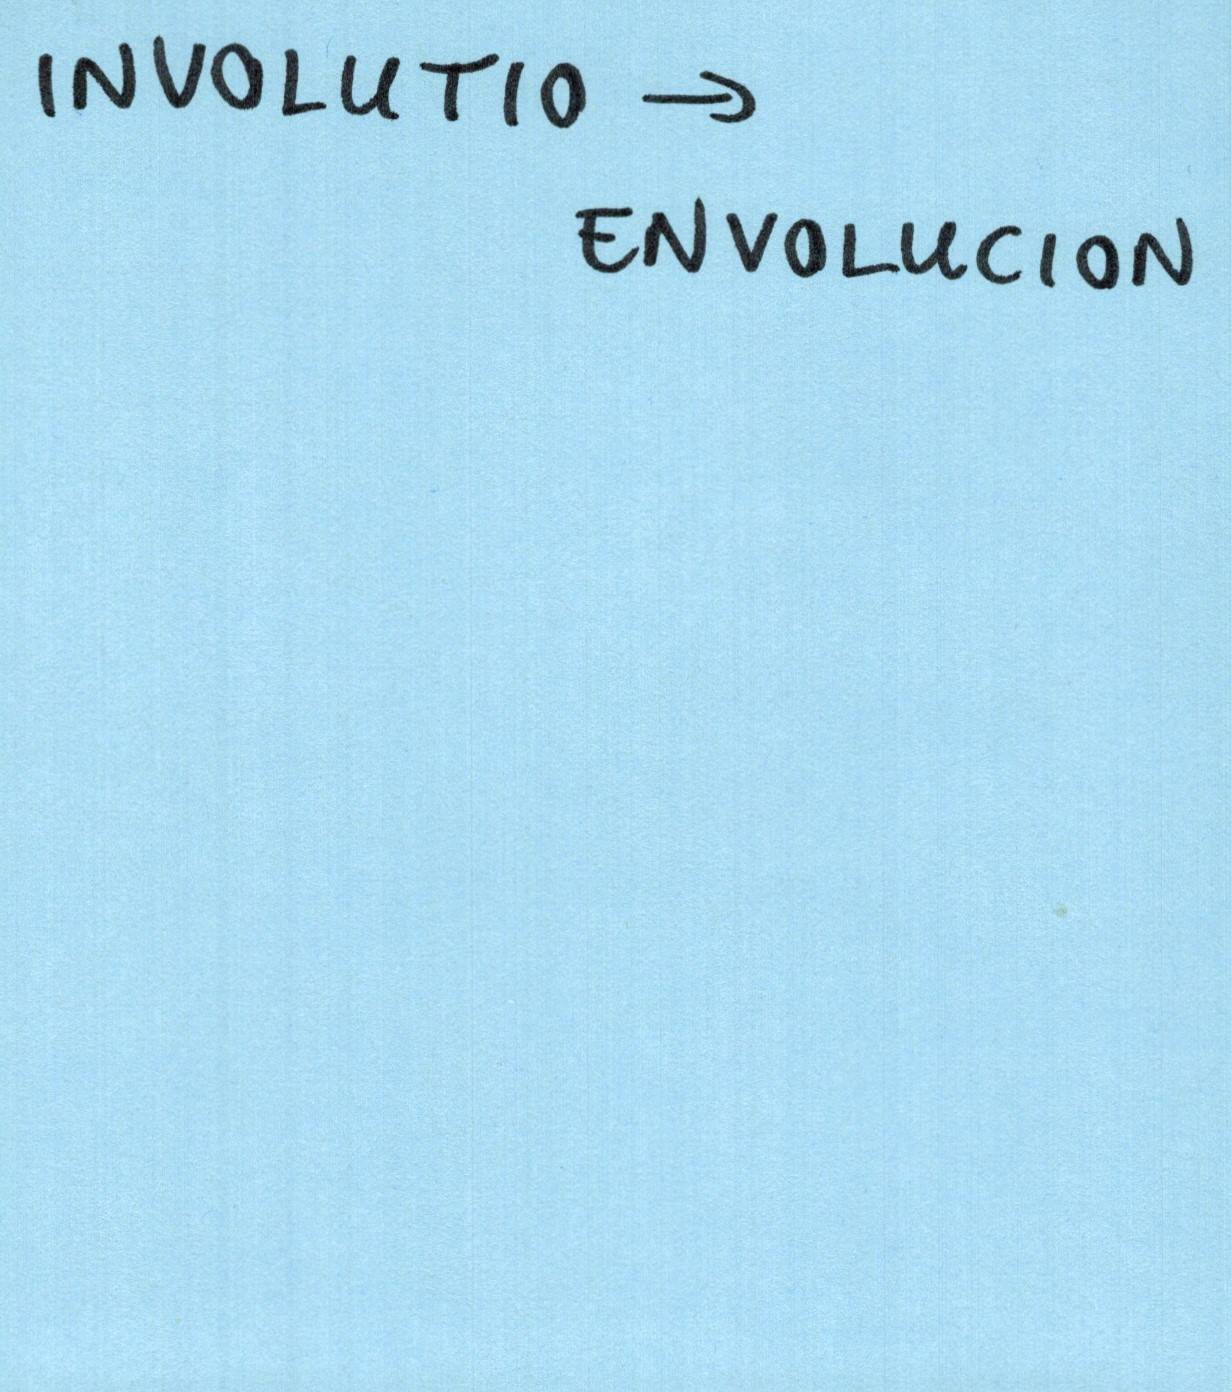 INVOLUTIO →
ENVOLUCION